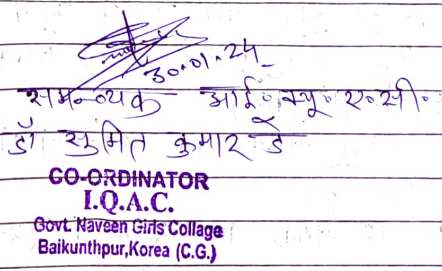 30.01.24
समन्वयक आई. क्यू. ए. सी.
डॉ सुमित कुमार डे
CO-ORDINATOR
I.Q.A.C.
Govt. Naveen Girls Collage
Baikunthpur,Korea (C.G.)